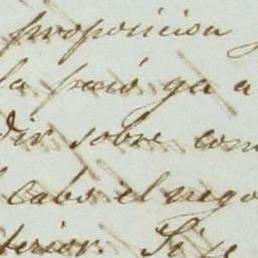 proposicion
la pasó ya a
dir sobre com
cabo el nego
terior. Si se